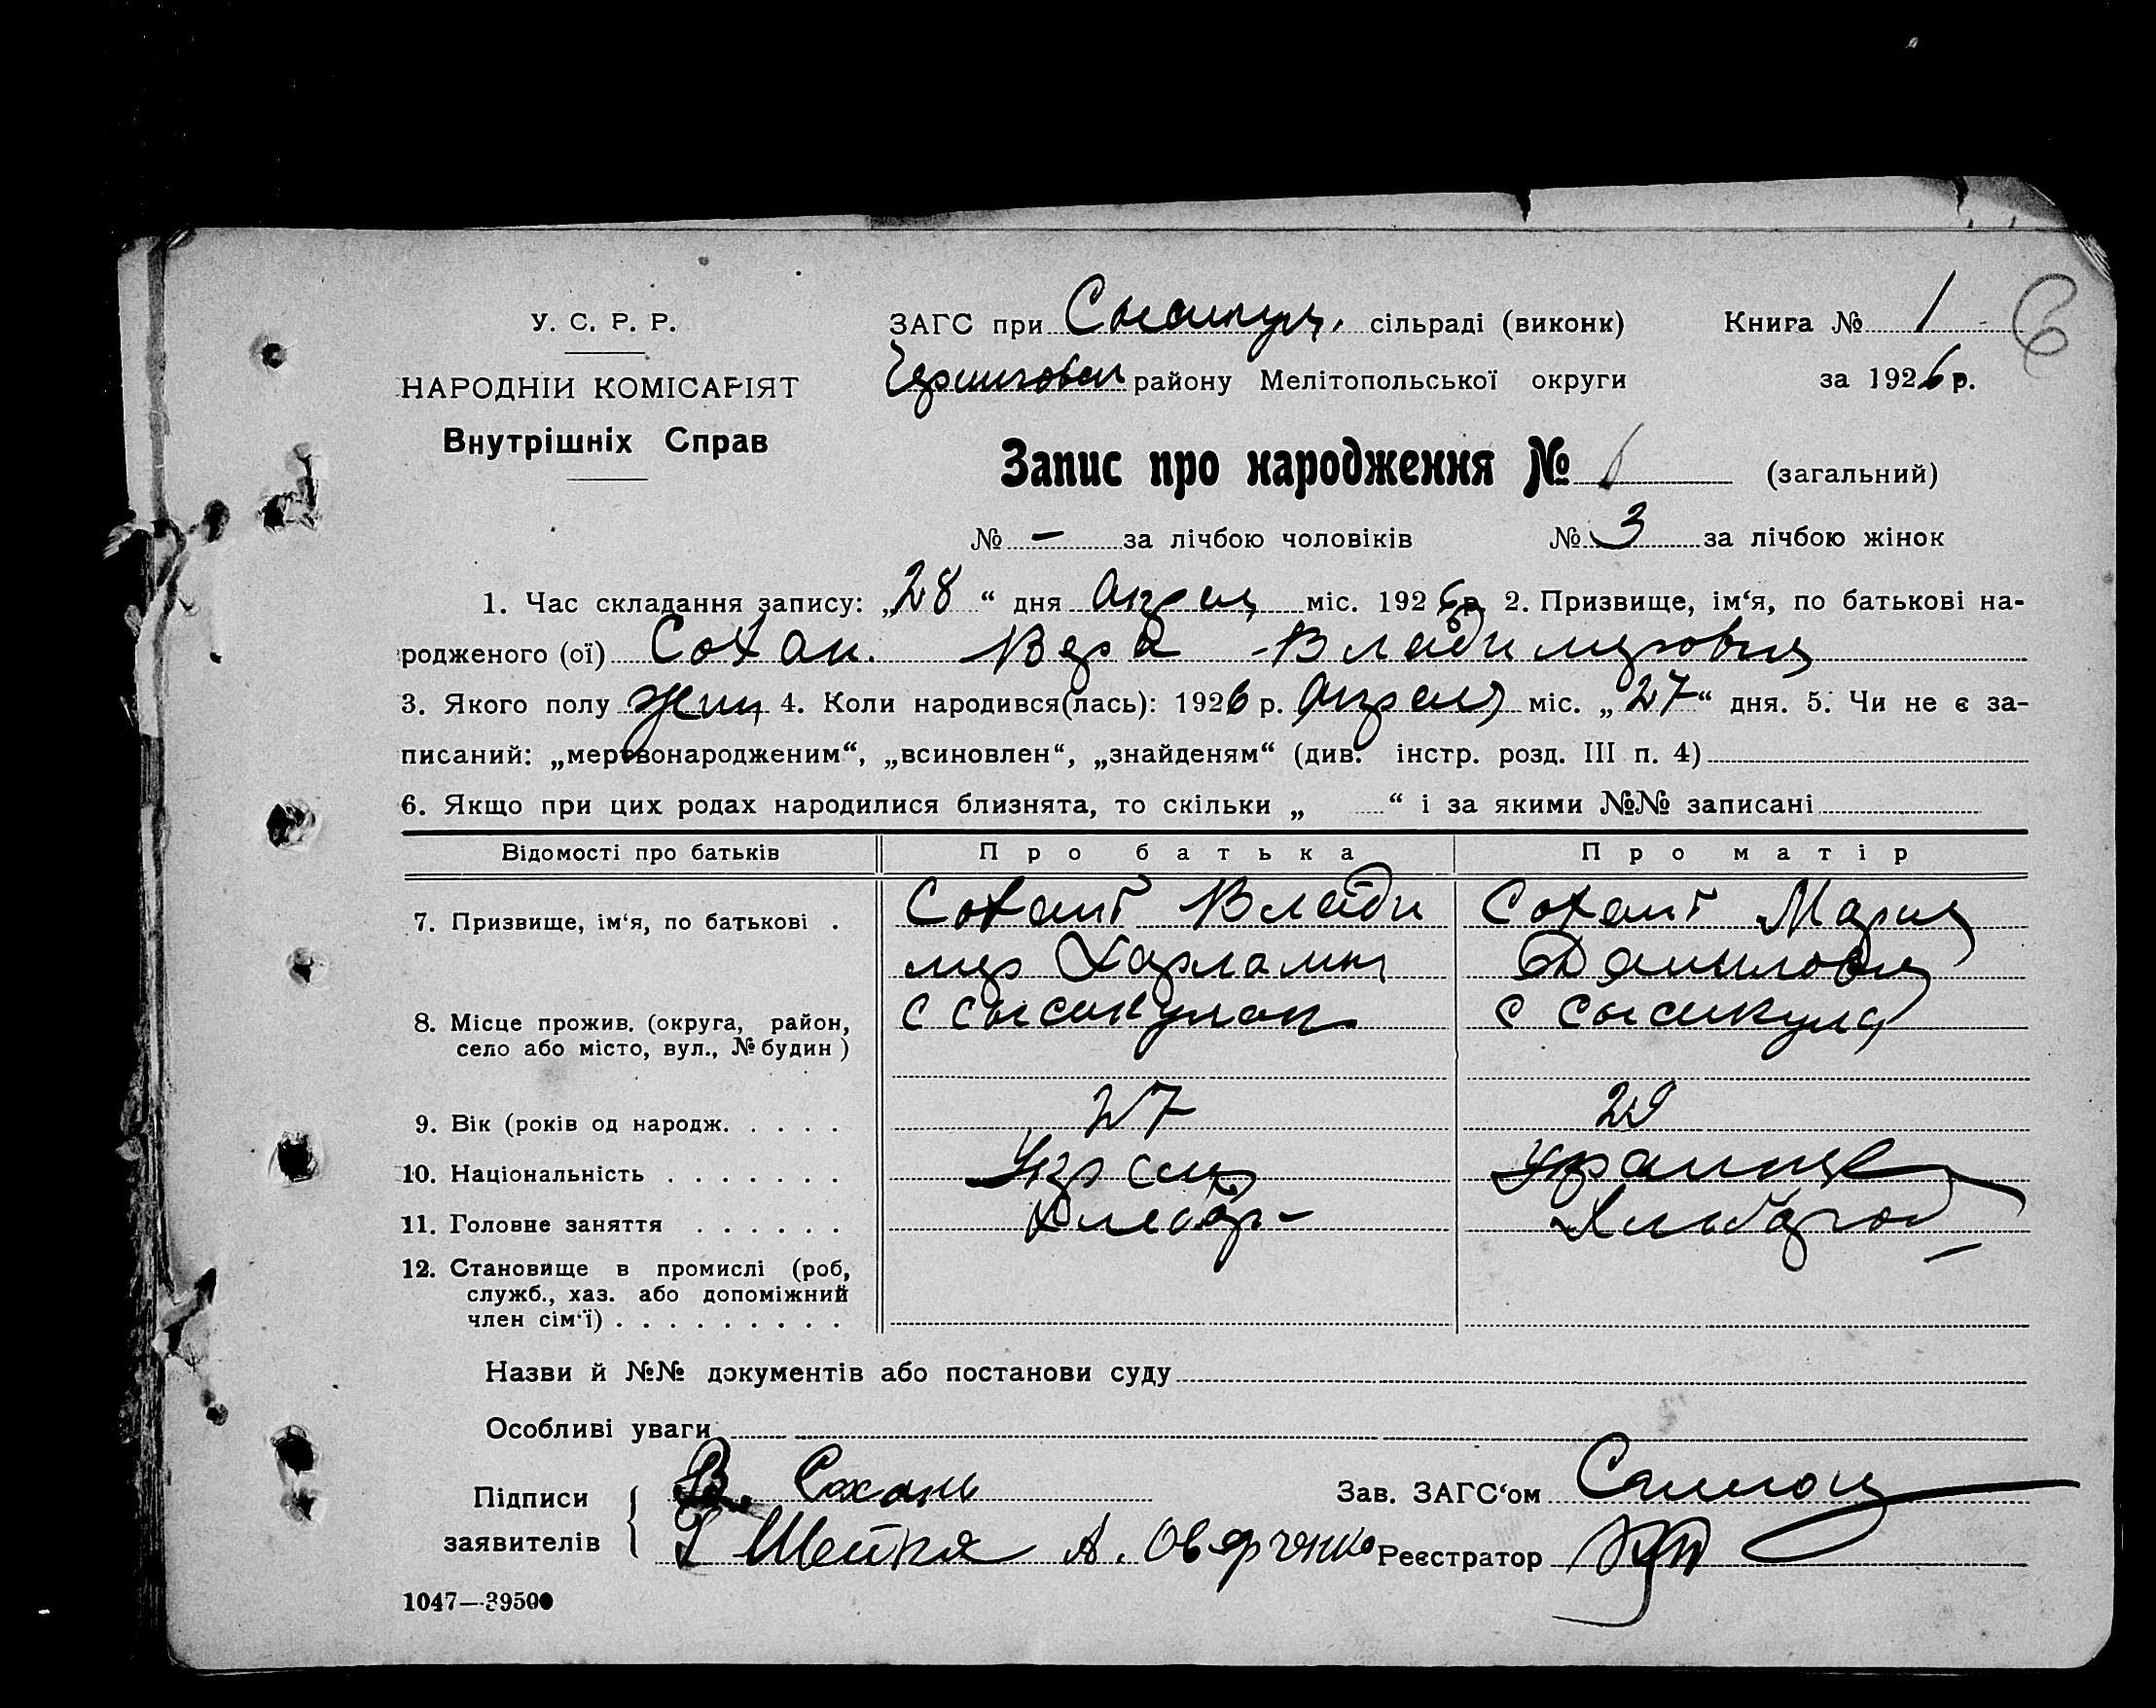 У. С. Р. Р.
НАРОДНІЙ КОМІСАРІЯТ
Внутрішніх Справ
ЗАГС при сільраді (виконк) Книга № 1
району Мелітопольської округи за 1926 р.
6
Запис про народження № (загальний)
№ — за лічбою чоловіків № 3 за лічбою жінок
1. Час складання запису: „28“ дня Апреля міс. 1926 р. 2. Призвище, ім‘я, по батькові на-
родженого (ої) Сохан. Вера Владимировна
3. Якого полу жин 4. Коли народився(лась): 1926 р. Апреля міс. „27“ дня. 5. Чи не є за-
писаний: „мертвонародженим“, „всиновлен“, „знайденям“ (див. інстр. розд. III п. 4)
6. Якщо при цих родах народилися близнята, то скільки „ “ і за якими №№ записані
Відомості про батьків Про батька Про матір
7. Призвище, ім‘я, по батькові . Сохань Влади Сохань Мария
мир Харламп Даниловна
8. Місце прожив. (округа, район, с с
село або місто, вул., № будин )
9. Вік (років од народж. . . . . 27 29
10. Національність . . . . . . . Украин
11. Головне заняття . . . . . . Хлебор-
12. Становище в промислі (роб,
служб., хаз. або допоміжний
член сім‘ї) . . . . . . . . .
Назви й №№ документів або постанови суду
Особливі уваги
Підписи В. Сохань Зав. ЗАГС‘ом
заявителів А. Оверченко Реєстратор
1047—39500